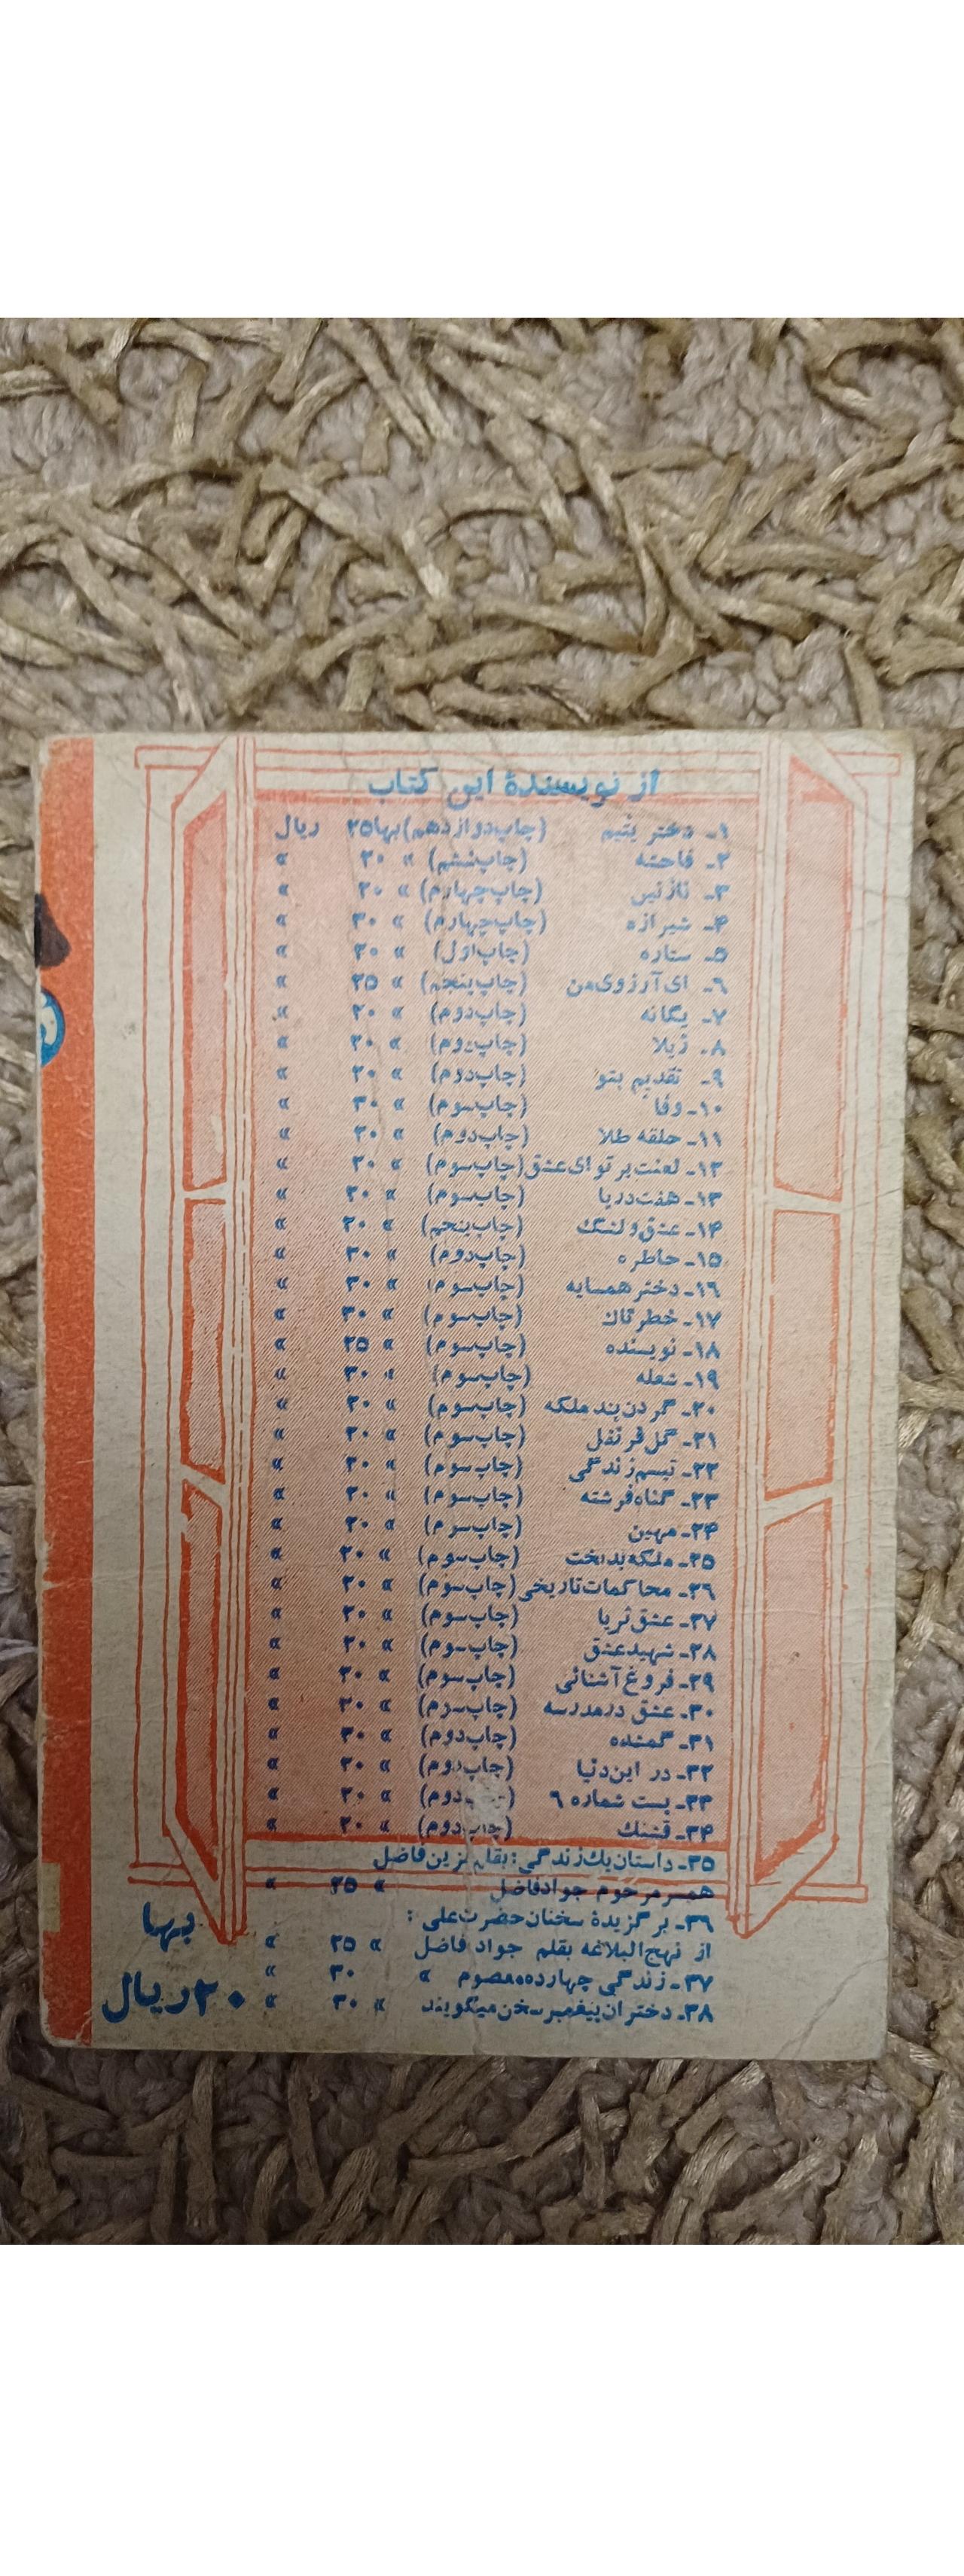 از نویسندهٔ این کتاب
۱- دختر یتیم (چاپ دوازدهم) بها ۲۵ ریال
۲- فاحشه (چاپ ششم) » ۲۰ »
۳- نازنین (چاپ چهارم) » ۲۰ »
۴- شیرازه (چاپ چهارم) » ۳۰ »
۵- ستاره (چاپ اول) » ۲۰ »
۶- ای آرزوی من (چاپ پنجم) » ۲۵ »
۷- یگانه (چاپ دوم) » ۲۰ »
۸- ژیلا (چاپ دوم) » ۲۰ »
۹- تقدیم بتو (چاپ دوم) » ۲۰ »
۱۰- وفا (چاپ سوم) » ۳۰ »
۱۱- حلقه طلا (چاپ دوم) » ۲۰ »
۱۲- لعنت بر تو ای عشق (چاپ سوم) » ۲۰ »
۱۳- هفت دریا (چاپ سوم) » ۲۰ »
۱۴- عشق و لشگ (چاپ پنجم) » ۲۰ »
۱۵- خاطره (چاپ دوم) » ۳۰ »
۱۶- دختر همسایه (چاپ سوم) » ۳۰ »
۱۷- خطرناک (چاپ سوم) » ۳۰ »
۱۸- نویسنده (چاپ سوم) » ۲۵ »
۱۹- شعله (چاپ سوم) » ۳۰ »
۲۰- گردن بند ملکه (چاپ سوم) » ۲۰ »
۲۱- گل قرنفل (چاپ سوم) » ۲۰ »
۲۲- تبسم زندگی (چاپ سوم) » ۲۰ »
۲۳- گناه فرشته (چاپ سوم) » ۲۰ »
۲۴- مهین (چاپ سوم) » ۲۰ »
۲۵- ملکه بدبخت (چاپ سوم) » ۲۰ »
۲۶- محاکمات تاریخی (چاپ سوم) » ۲۰ »
۲۷- عشق ثریا (چاپ سوم) » ۲۰ »
۲۸- شهید عشق (چاپ سوم) » ۲۰ »
۲۹- فروغ آشنائی (چاپ سوم) » ۲۰ »
۳۰- عشق در مدرسه (چاپ سوم) » ۲۰ »
۳۱- گمشده (چاپ دوم) » ۳۰ »
۳۲- در این دنیا (چاپ دوم) » ۲۰ »
۳۳- پست شماره ۹ (چاپ دوم) » ۲۰ »
۳۴- قشنگ (چاپ دوم) » ۲۰ »
۳۵- داستان یک زندگی: بقلم زین فاضل
همسر مرحوم جواد فاضل » ۲۵ »
۳۶- برگزیدهٔ سخنان حضرت علی:
از نهج البلاغه بقلم جواد فاضل » ۲۵ »
۳۷- زندگی چهارده معصوم » ۳۰ »
۳۸- دختران پیغمبر سخن میگویند » ۳۰ »
بها
۲۰ ریال